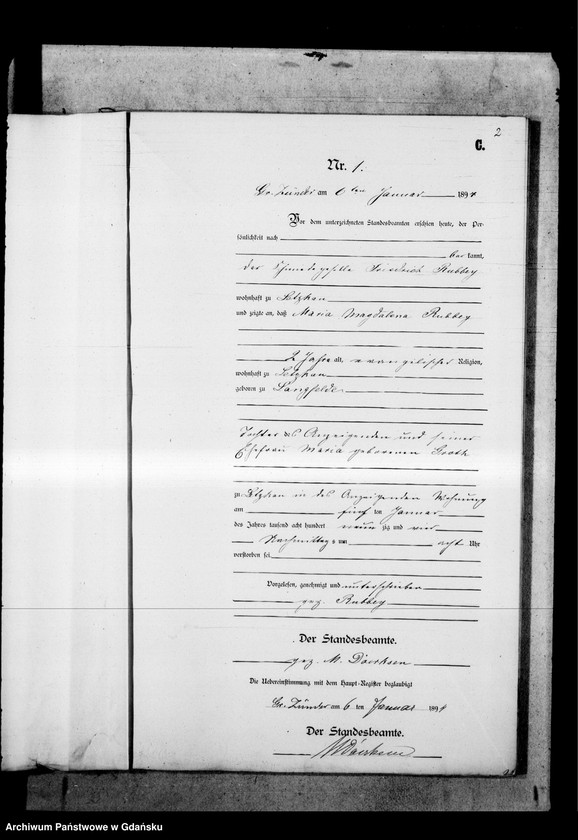 2
C.
Nr. 1.
Gr. Zünder am 6ten Januar 1894
Vor dem unterzeichneten Standesbeamten erschien heute, der Per-
sönlichkeit nach
bekannt,
der Schmiedegeselle Friedrich Rubbey
wohnhaft zu Letzkau
und zeigte an, daß Maria Magdalena Rubbey
2 Jahre alt, evangelischer Religion,
wohnhaft zu Letzkau
geboren zu Langfelde
Tochter des Anzeigenden und seiner
Ehefrau Maria geborenen Groth
zu Letzkau in des Anzeigenden Wohnung
am fünften Januar
des Jahres tausend acht hundert neunzig und vier
Nachmittags um acht Uhr
verstorben sei
Vorgelesen, genehmigt und unterschrieben
gez. Rubbey
Der Standesbeamte.
gez. M. Doerksen
Die Uebereinstimmung mit dem Haupt-Register beglaubigt
Gr. Zünder am 6ten Januar 1894
Der Standesbeamte.
M Doerksen
Archiwum Państwowe w Gdańsku